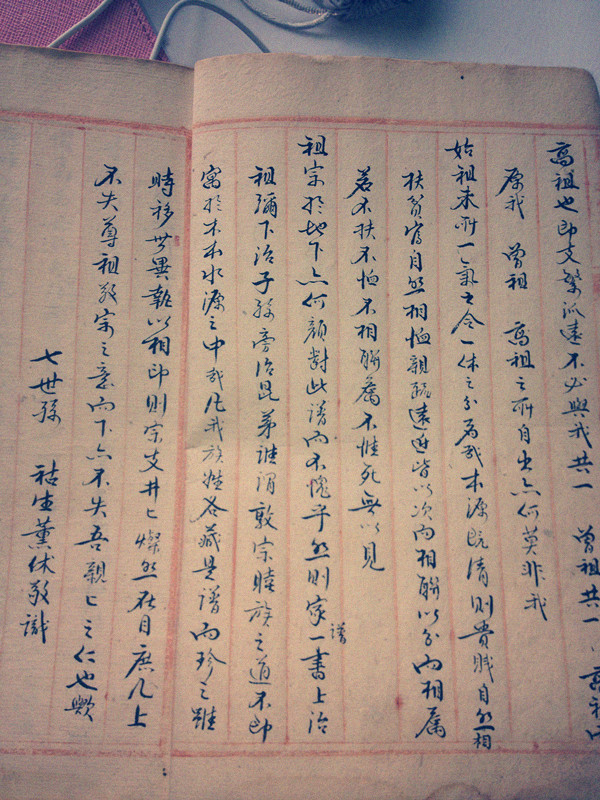 高祖也即支繁派遠不必與我共一 曾祖共一 高祖
原我 曾祖 高祖之所自出亦何莫非我
始祖来所一氣之合一体之分为我本源既清則貴賤自然相
扶貧富自然相恤親疏遠近皆以次而相聯以分而相属
若不扶不恤不相聯属不惟死無以見
祖宗於地下亦何顔對此譜而不愧乎然則家譜一書上治
祖禰下治子孫旁治昆弟誰謂敦宗睦族之道不即
寓於木本水源之中哉凡我族姓各藏是譜而珍之雖
時移世異執以相印則宗支井匕燦然在目庶几上
不失尊祖敬宗之意而下亦不失吾親匕之仁也歟
七世孫 祜生薰休敬識